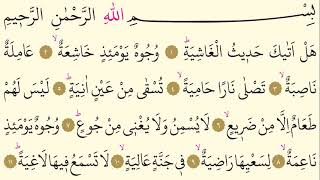 بِسْمِ اللّٰهِ الرَّحْمٰنِ الرَّحِيمِ
هَلْ اَتٰيكَ حَدِيثُ الْغَاشِيَةِۜ ﴿١﴾ وُجُوهٌ يَوْمَئِذٍ خَاشِعَةٌۙ ﴿٢﴾ عَامِلَةٌ
نَاصِبَةٌۙ ﴿٣﴾ تَصْلٰى نَارًا حَامِيَةًۙ ﴿٤﴾ تُسْقٰى مِنْ عَيْنٍ اٰنِيَةٍۜ ﴿٥﴾ لَيْسَ لَهُمْ
طَعَامٌ اِلَّا مِنْ ضَرِيعٍۙ ﴿٦﴾ لَا يُسْمِنُ وَلَا يُغْنٖى مِنْ جُوعٍۜ ﴿٧﴾ وُجُوهٌ يَوْمَئِذٍ
نَاعِمَةٌۙ ﴿٨﴾ لِسَعْيِهَا رَاضِيَةٌۙ ﴿٩﴾ فٖى جَنَّةٍ عَالِيَةٍۙ ﴿١٠﴾ لَا تَسْمَعُ فٖيهَا لَاغِيَةًۜ ﴿١١﴾